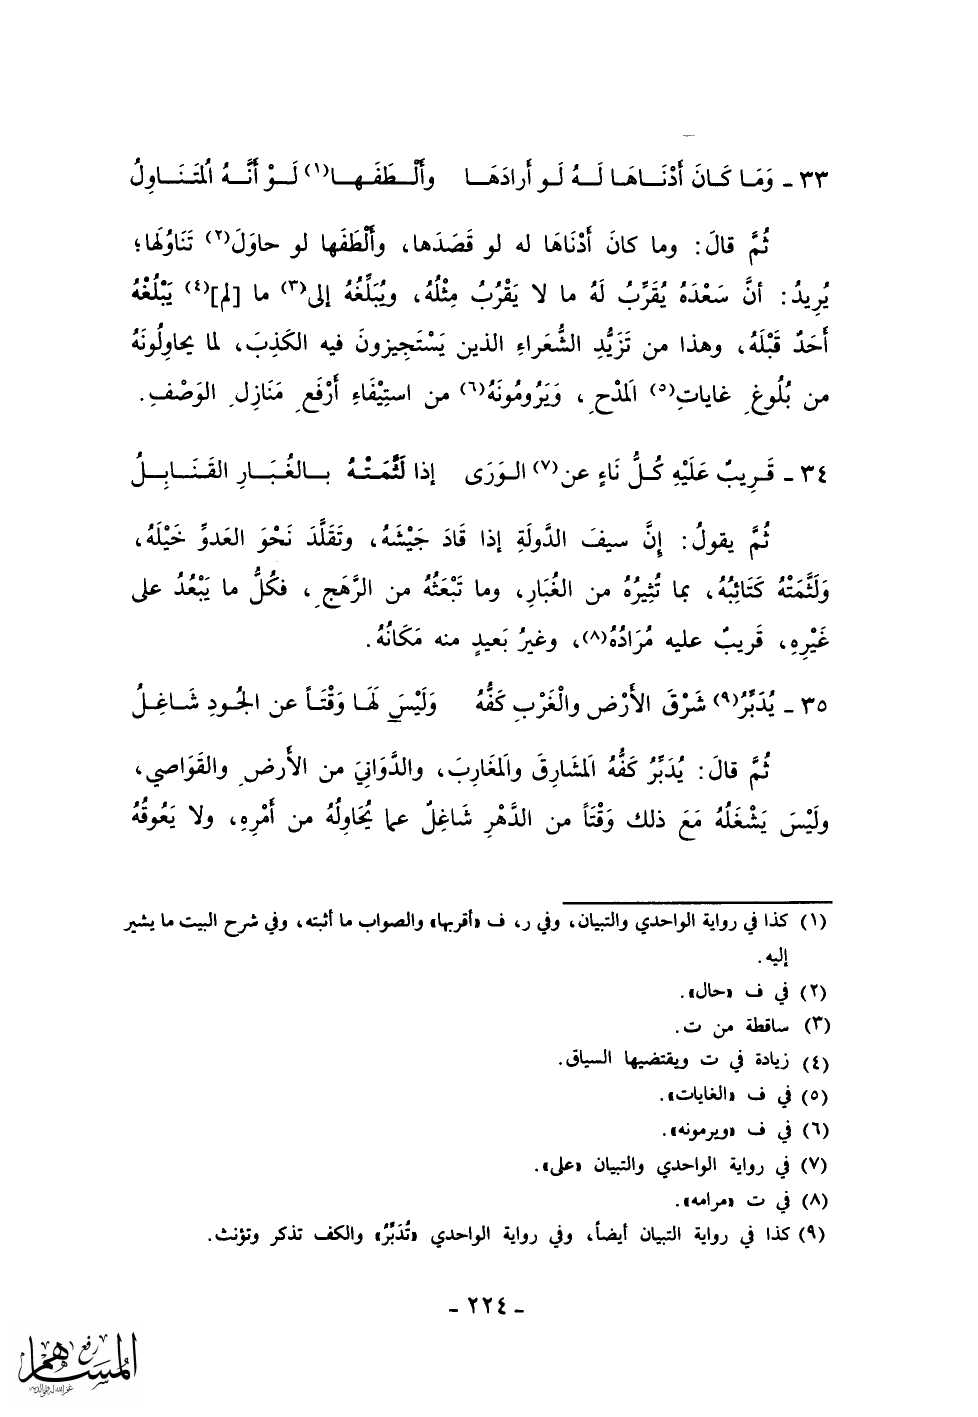 ٣٣ ـ وَمَـا كَـانَ أَدْنَـاهَـا لَـهُ لَـو أَرادَهَـا    وأَلْـطَـفَـهـا(١) لَـوْ أَنَّـهُ الُمتَـنَـاوِلُ
ثُمَّ قالَ: وما كانَ أَدْنَاهَا له لو قَصَدَها، وأَلْطَفَها لو حاوَلَ(٢) تَنَاوُلَها؛
يُرِيدُ: أنَّ سَعْدَهُ يُقَرِّبُ لَهُ ما لا يَقْرُبُ مِثْلُهُ، ويُبَلِّغُهُ إلى(٣) ما [لم](٤) يَبْلُغْهُ
أَحَدٌ قَبْلَهُ، وهذا من تَزَيُّدِ الشُّعَراءِ الذين يَسْتَجِيزونَ فيه الكَذِبَ، لما يحاوِلُونَهُ
من بُلُوغِ غاياتِ(٥) المَدْحِ، وَيَرُومُونَهُ(٦) من استِيْفَاءِ أَرْفَعِ مَنَازِلِ الوَصْفِ.
٣٤ ـ قَـرِيبٌ عَلَيْهِ كُـلُّ نَاءٍ عن(٧) الـوَرَى    إذا لَثَّمَتْـهُ بـالغُبَـارِ القَنَـابِـلُ
ثُمَّ يقولُ: إنَّ سيفَ الدَّولَةِ إذا قَادَ جَيْشَهُ، وتَقَلَّدَ نَحْوَ العَدوِّ خَيْلَهُ،
وَلَثَّمَتْهُ كَتَائِبُهُ، بما تُثِيرُهُ من الغُبَارِ، وما تَبْعَثُهُ من الرَّهَجِ، فكُلُّ ما يَبْعُدُ على
غَيْرِهِ، قَريبٌ عليه مُرَادُهُ(٨)، وغيرُ بَعيدٍ منه مَكَانُهُ.
٣٥ ـ يُدَبِّرُ(٩) شَرْقَ الأَرْضِ والْغَرْبِ كَفُّهُ    وَلَيْسَ لَهَا وَقْتَـاً عن الجُـودِ شَـاغِـلُ
ثُمَّ قالَ: يُدَبِّرُ كَفُّهُ المَشارِقَ والمَغَارِبَ، والدَّوَانِيَ من الأَرضِ والقَوَاصي،
ولَيْسَ يَشْغَلُهُ مَعَ ذلك وَقْتَاً من الدَّهْرِ شَاغِلٌ عما يُحَاوِلُهُ من أَمْرِهِ، ولا يَعُوقُهُ
(١) كذا في رواية الواحدي والتبيان، وفي ر، ف «أقربها» والصواب ما أثبته، وفي شرح البيت ما يشير
إليه.
(٢) في ف «حال».
(٣) ساقطة من ت.
(٤) زيادة في ت ويقتضيها السياق.
(٥) في ف «الغايات».
(٦) في ف «ويرمونه».
(٧) في رواية الواحدي والتبيان «على».
(٨) في ت «مرامه».
(٩) كذا في رواية التبيان أيضاً، وفي رواية الواحدي «تُدَبِّرُ» والكف تذكر وتؤنث.
ـ ٢٢٤ ـ
رفع
المساهم